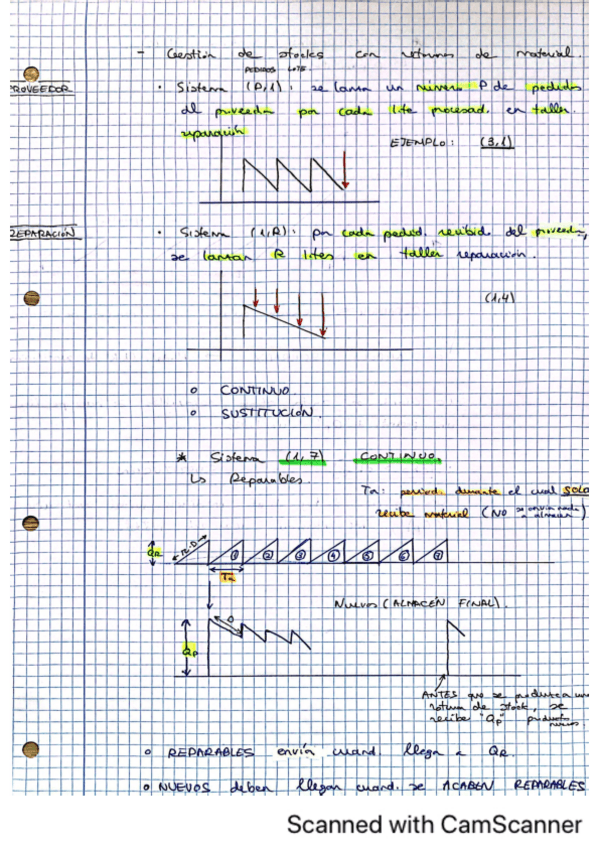 - Gestión de stocks con retornos de material.
PEDIDOS LOTE.
PROVEEDOR
• Sistema (P,1): se lanza un número P de pedidos
al proveedor por cada lote procesad. en taller
reparación
EJEMPLO: (3,1)
REPARACIÓN
• Sistema (1,R): por cada pedid. recibid. del proveedor,
se lanzan R lotes en taller reparación.
(1,4)
o CONTINUO
o SUSTITUCIÓN.
* Sistema (1,7) CONTINUO.
↳ Reparables
TR: periodo durante el cual SOLO
recibe material (NO se envía nada a almacén)
QR
r·D
① ② ③ ④ ⑤ ⑥ ⑦
TR
Nuevos (ALMACÉN FINAL).
D
QP
ANTES que se produzca una
rotura de stock, se
recibe "QP" productos
nuevos.
o REPARABLES envían cuand. llega a QR.
o NUEVOS deben llegar cuand. se ACABEN REPARABLES
Scanned with CamScanner